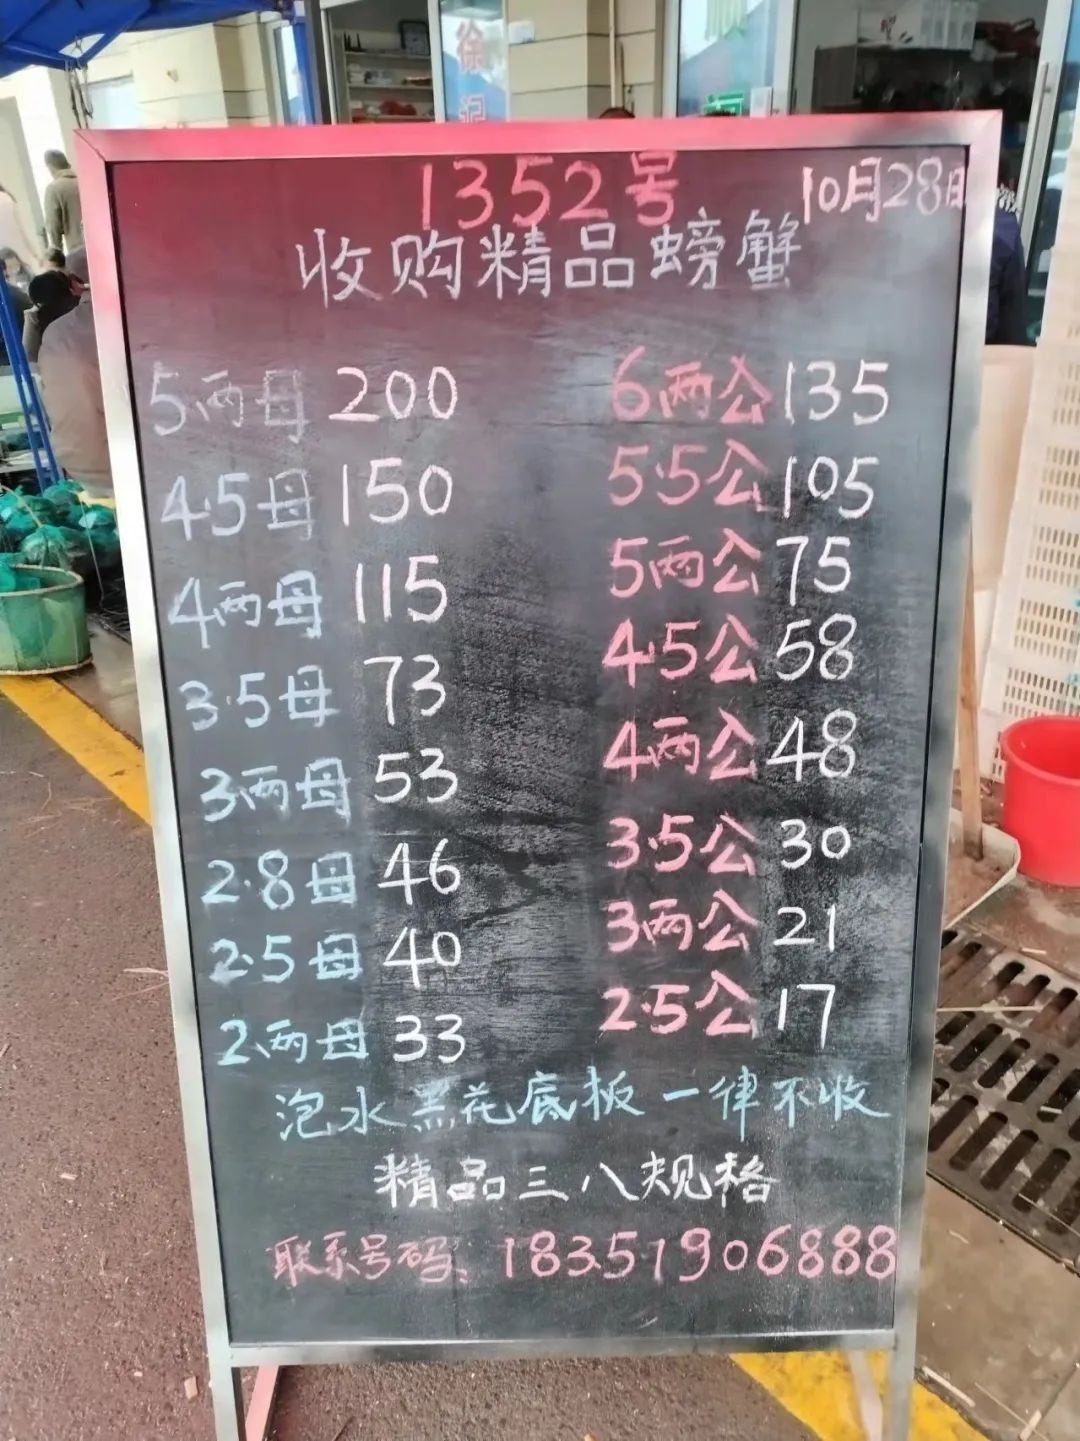 徐记
1352号 10月28日
收购精品螃蟹
5两母 200 6两公 135
4.5母 150 5.5公 105
4两母 115 5两公 75
3.5母 73 4.5公 58
3两母 53 4两公 48
2.8母 46 3.5公 30
2.5母 40 3两公 21
2两母 33 2.5公 17
泡水黑花底板一律不收
精品三八规格
联系号码:18351906888